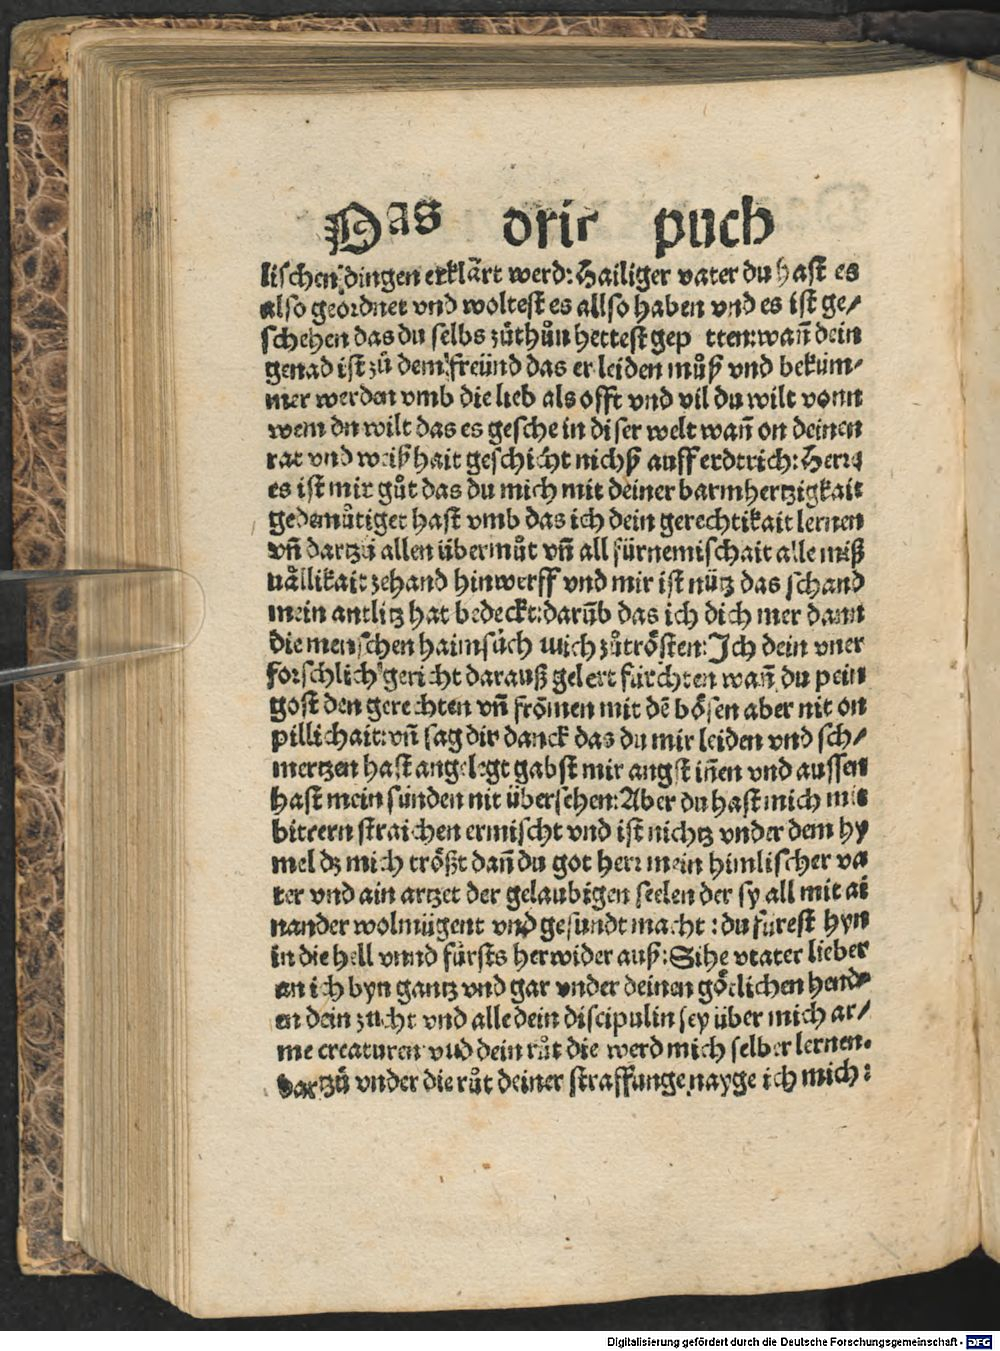 Das drit puch
lischen dingen erklårt werd: Hailiger vater du hast es
also geordnet vnd woltest es allso haben vnd es ist ge/
schehen das du selbs zůthůn hettest gep tten: wañ dein
genad ist zů dem freünd das er leiden můß vnd bekum-
mer werden vmb die lieb als offt vnd vil du wilt vonn
wem du wilt das es gesche in diser welt wañ on deinen
rat vnd weißhait geschicht nichß auff erdtrich: Herr
es ist mir gůt das du mich mit deiner barmhertzigkait
gedemůtiget hast vmb das ich dein gerechtikait lernen
vñ dartzů allen übermůt vñ all fürnemischait alle miß
uållikait zehand hinwerff vnd mir ist nütz das schand
mein antlitz hat bedeckt: darūb das ich dich mer dann
die menschen haimsůch mich zůtrôsten: Ich dein vner
forschlich gericht darauß gelert fürchten wañ du pein
gost den gerechten vñ frōmen mit dē bôsen aber nit on
pillichait: vñ sag dir danck das du mir leiden vnd sch/
mertzen hast angelegt gabst mir angst iñen vnd aussen
hast mein sünden nit übersehen: Aber du hast mich mit
bittern straichen ermischt vnd ist nichtz vnder dem hy
mel dz mich trôßt dañ du got herr mein himlischer va
ter vnd ain artzet der gelaubigen seelen der sy all mit ai
nander wolmügent vnd gesundt macht: du fürest hyn
in die hell vnnd fürsts herwider auß: Sihe vtater lieber
an ich byn gantz vnd gar vnder deinen gôtlichen hend/
en dein zucht vnd alle dein discipulin sey über mich ar/
me creaturen vnd dein růt die werd mich selber lernen.
dartzů vnder die růt deiner straffunge nayge ich mich:
Digitalisierung gefördert durch die Deutsche Forschungsgemeinschaft - DFG